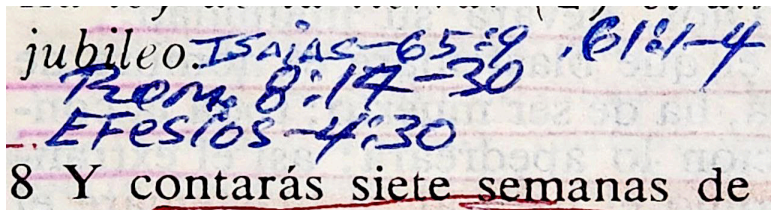 jubileo. Isaias-65:9 , 61:1-4
Rom. 8:14-30
EFesios-4:30
8 Y contarás siete semanas de